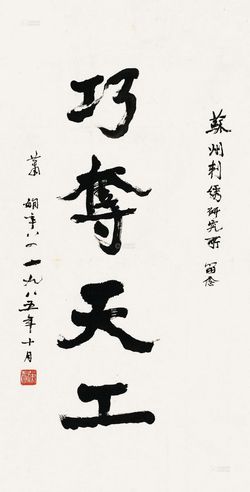 蘇州刺繡研究所 留念
巧奪天工
蕭嫻年八四 一九八五年十月